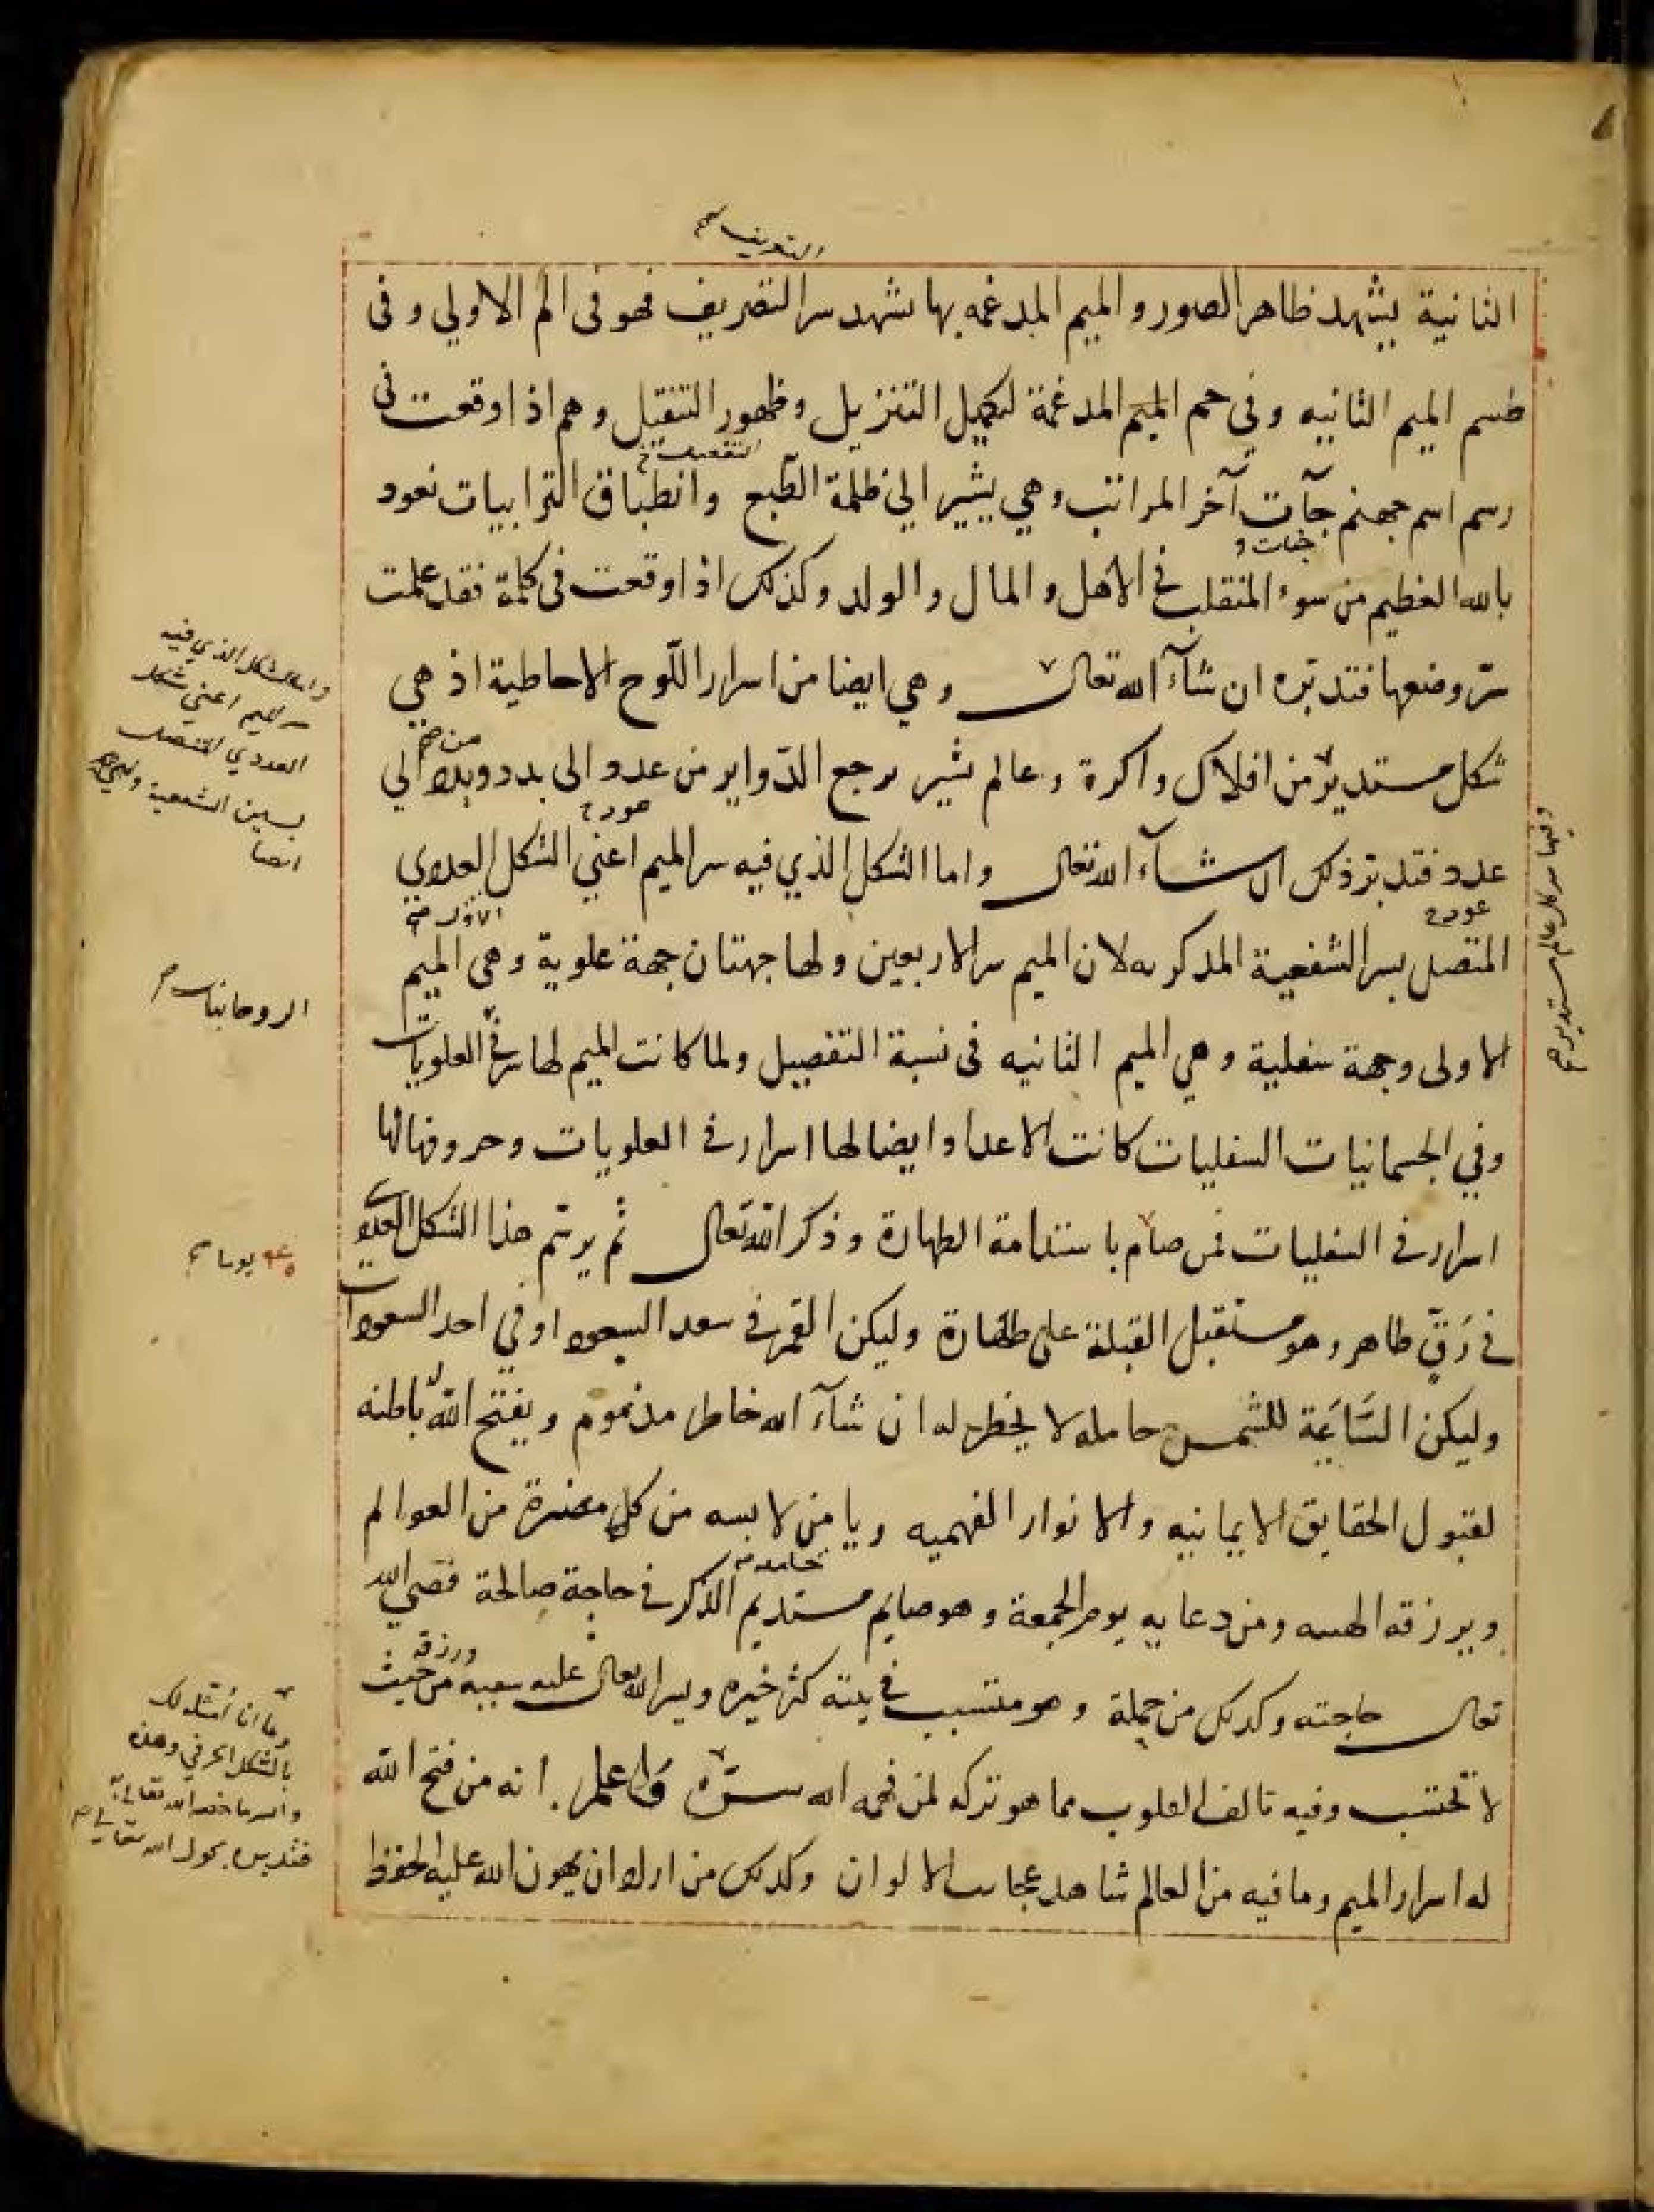 الثانية يشهد ظاهر الصور و الميم المدغمه بها يشهد سر التصريف فهو فى الم الاولي و فى
طسم الميم الثانيه وفي حم الميم المدغمة لتكميل التنزيل وظهور التنقيل وهم اذا وقعت فى
رسم اسم جهنم جآت آخر المراتب وهي يشير الي ظلمة الطبع وانطباق الترابيات نعود
بالله العظيم من سوء المنقلب في الاهل والمال والولد وكذلك اذا وقعت فى كلمة فقد علمت
سرّ وضعها فتدبّره ان شآء الله تعالى وهي ايضا من اسرار اللّوح الاحاطية اذ هي
شكل مستدير من افلاك واكرة وعالم بشير يرجع الدّواير من عدد الى بدد وبلا الي
عدد فتدبّر ذلك ان شآء الله تعالى واما الشكل الذي فيه سر الميم اعني الشكل العددي
المتصل بسر الشفعية المذكر به لان الميم سر الاربعين ولها جهتان جهة علوية وهي الميم
الاولى وجهة سفلية وهي الميم الثانيه فى نسبة التفصيل ولما كانت الميم لها سر في العلويات
وفي الجسمانيات السفليات كانت الاعدا وايضا لها اسرار في العلويات وحروفها لها
اسرار في السفليات فمن صام باستدامة الطهارة وذكر الله تعالى ثم يرتم هذا الشكل العددي
في رَقّ طاهر وهو مستقبل القبلة على طهارة وليكن القمر في سعد السعود او في احد السعودات
وليكن السَّاعَة للشمس حامله لا يخطر له ان شآء الله خاطر مذموم ويفتح الله باطنه
لقبول الحقايق الايمانيه والانوار الفهميه ويامن لابسه من كل مضرة من العوالم
ويرزقه الهيبه ومن دعا به يوم الجمعة وهو صايم مستديم الذكر في حاجة صالحة قضى الله
تعالى حاجته وكذلك من حمله وهو متسبب في بيته كثر خيره ويسر الله تعالى عليه سببه من حيث
لا تحتسب وفيه تالف القلوب مما هو تركه لمن فهمه الله سرّه واعلم انه من فتح الله
له اسرار الميم وما فيه من العالم شاهد عجايب الالوان وكذلك من اراد ان يهون الله عليه الحفظ
واما الشكل الذي فيه
سر الميم اعني شكل
العددي المتصل
بسين الشفعية
ايضا
الروحانيات
يوما
وها انا امثل لك
بالشكل الحرفي وهذه
فتدبره بحول الله تعالى
وفيها سر كل عالم مستدير